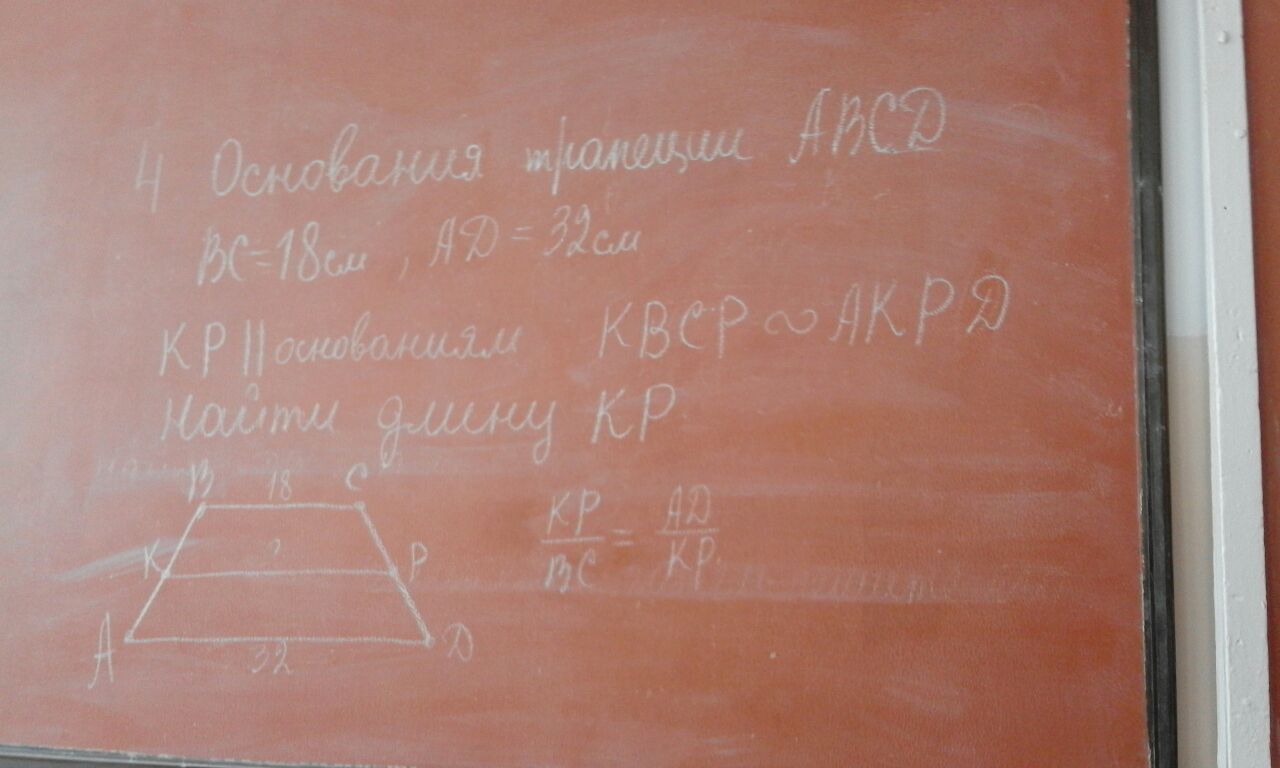 4 Основания трапеции ABCD
BC=18см, AD=32см
KP || основаниям KBCP ~ AKPD
Найти длину KP
B 18 C
K ? P
A 32 D
KP/BC = AD/KP